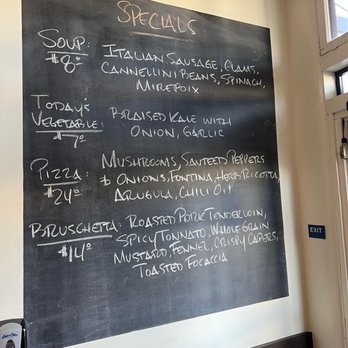 SPECIALS
SOUP: ITALIAN SAUSAGE, CLAMS,
$8º CANNELLINI BEANS, SPINACH,
MIREPOIX
TODAY'S
VEGETABLE: BRAISED KALE WITH
$7º ONION, GARLIC
PIZZA: MUSHROOMS, SAUTEED PEPPERS
$24º & ONIONS, FONTINA, HERB RICOTTA,
ARUGULA, CHILI OIL
BRUSCHETTA: ROASTED PORK TENDERLOIN,
$14º SPICY TONNATO, WHOLE GRAIN
MUSTARD, FENNEL, CRISPY CAPERS,
TOASTED FOCACCIA
EXIT